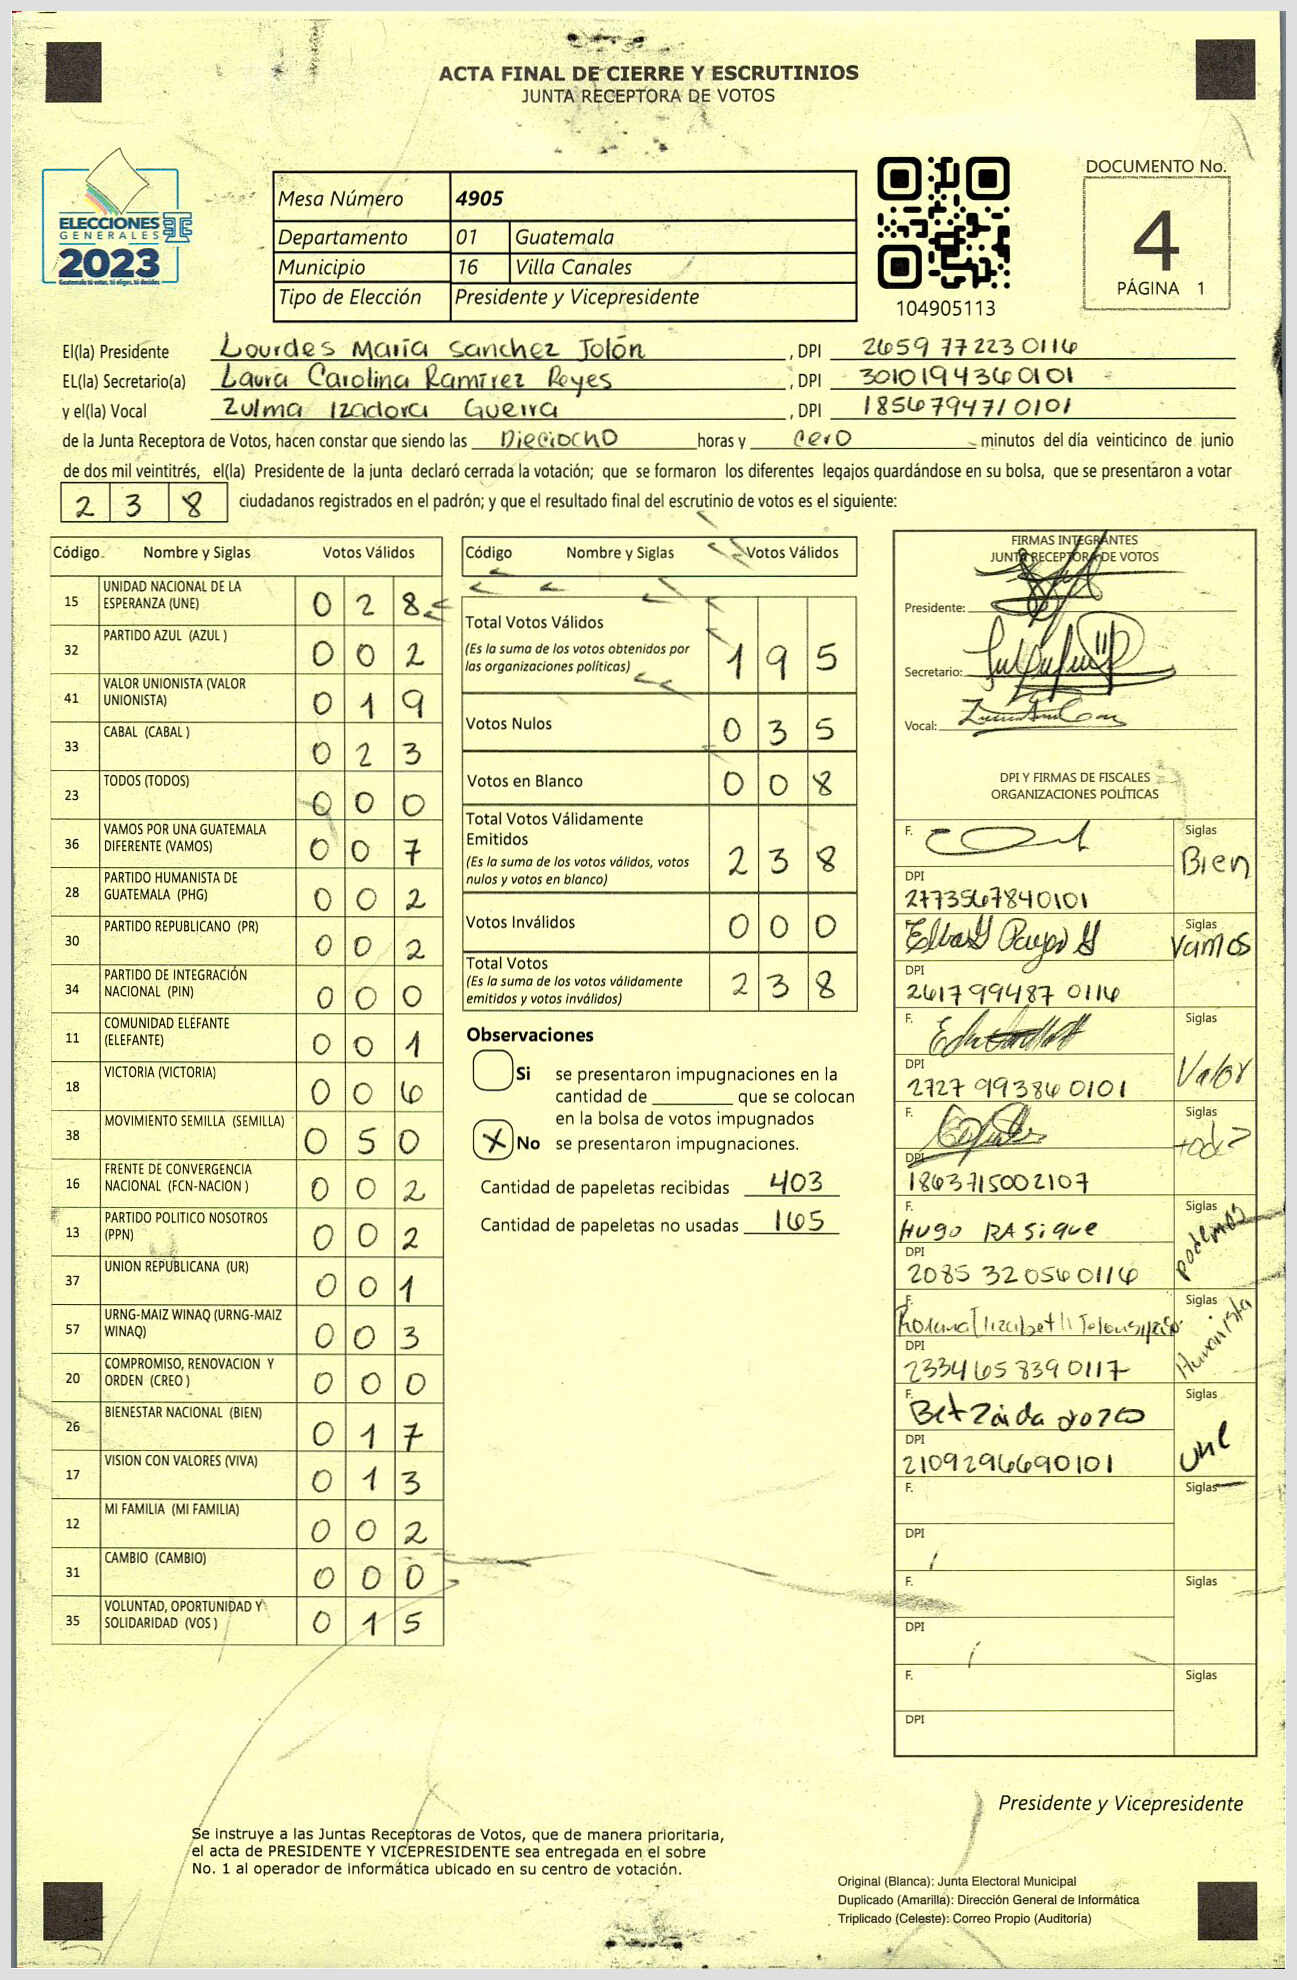 ACTA FINAL DE CIERRE Y ESCRUTINIOS
JUNTA RECEPTORA DE VOTOS
ELECCIONES
GENERALES
2023
Guatemala tú votas, tú eliges, tú decides
TSE
Mesa Número 4905
Departamento 01 Guatemala
Municipio 16 Villa Canales
Tipo de Elección Presidente y Vicepresidente
104905113
DOCUMENTO No.
4
PÁGINA 1
El(la) Presidente Lourdes María Sanchez Jolón , DPI 2659 77223 0116
EL(la) Secretario(a) Laura Carolina Ramírez Reyes , DPI 3010194360101
y el(la) Vocal Zulma Izadora Guerra , DPI 1856794710101
de la Junta Receptora de Votos, hacen constar que siendo las Dieciocho horas y cero minutos del día veinticinco de junio
de dos mil veintitrés, el(la) Presidente de la junta declaró cerrada la votación; que se formaron los diferentes legajos quardándose en su bolsa, que se presentaron a votar
2 3 8 ciudadanos registrados en el padrón; y que el resultado final del escrutinio de votos es el siguiente:
Código Nombre y Siglas Votos Válidos
15 UNIDAD NACIONAL DE LA ESPERANZA (UNE) 0 2 8
32 PARTIDO AZUL (AZUL ) 0 0 2
41 VALOR UNIONISTA (VALOR UNIONISTA) 0 1 9
33 CABAL (CABAL ) 0 2 3
23 TODOS (TODOS) 0 0 0
36 VAMOS POR UNA GUATEMALA DIFERENTE (VAMOS) 0 0 7
28 PARTIDO HUMANISTA DE GUATEMALA (PHG) 0 0 2
30 PARTIDO REPUBLICANO (PR) 0 0 2
34 PARTIDO DE INTEGRACIÓN NACIONAL (PIN) 0 0 0
11 COMUNIDAD ELEFANTE (ELEFANTE) 0 0 1
18 VICTORIA (VICTORIA) 0 0 6
38 MOVIMIENTO SEMILLA (SEMILLA) 0 5 0
16 FRENTE DE CONVERGENCIA NACIONAL (FCN-NACION ) 0 0 2
13 PARTIDO POLITICO NOSOTROS (PPN) 0 0 2
37 UNION REPUBLICANA (UR) 0 0 1
57 URNG-MAIZ WINAQ (URNG-MAIZ WINAQ) 0 0 3
20 COMPROMISO, RENOVACION Y ORDEN (CREO ) 0 0 0
26 BIENESTAR NACIONAL (BIEN) 0 1 7
17 VISION CON VALORES (VIVA) 0 1 3
12 MI FAMILIA (MI FAMILIA) 0 0 2
31 CAMBIO (CAMBIO) 0 0 0
35 VOLUNTAD, OPORTUNIDAD Y SOLIDARIDAD (VOS ) 0 1 5
Código Nombre y Siglas Votos Válidos
Total Votos Válidos
(Es la suma de los votos obtenidos por
las organizaciones políticas) 1 9 5
Votos Nulos 0 3 5
Votos en Blanco 0 0 8
Total Votos Válidamente
Emitidos
(Es la suma de los votos válidos, votos
nulos y votos en blanco) 2 3 8
Votos Inválidos 0 0 0
Total Votos
(Es la suma de los votos válidamente
emitidos y votos inválidos) 2 3 8
Observaciones
Si se presentaron impugnaciones en la
cantidad de ________ que se colocan
en la bolsa de votos impugnados
X No se presentaron impugnaciones.
Cantidad de papeletas recibidas 403
Cantidad de papeletas no usadas 165
FIRMAS INTEGRANTES
JUNTA RECEPTORA DE VOTOS
Presidente:
Secretario:
Vocal:
DPI Y FIRMAS DE FISCALES
ORGANIZACIONES POLÍTICAS
F. Siglas
Bien
DPI
2773567840101
F. Siglas
Vamos
DPI
2617 99487 0116
F. Siglas
Valor
DPI
2727 99386 0101
F. Siglas
todos
DPI
1863715002107
F. Siglas
Hugo RA Sique podemos
DPI
2085 32056 0116
F. Siglas
Humanista
DPI
2334658390117
F. Siglas
Betzaida orozco une
DPI
2109296690101
F. Siglas
DPI
F. Siglas
DPI
F. Siglas
DPI
Presidente y Vicepresidente
Se instruye a las Juntas Receptoras de Votos, que de manera prioritaria,
el acta de PRESIDENTE Y VICEPRESIDENTE sea entregada en el sobre
No. 1 al operador de informática ubicado en su centro de votación.
Original (Blanca): Junta Electoral Municipal
Duplicado (Amarilla): Dirección General de Informática
Triplicado (Celeste): Correo Propio (Auditoría)